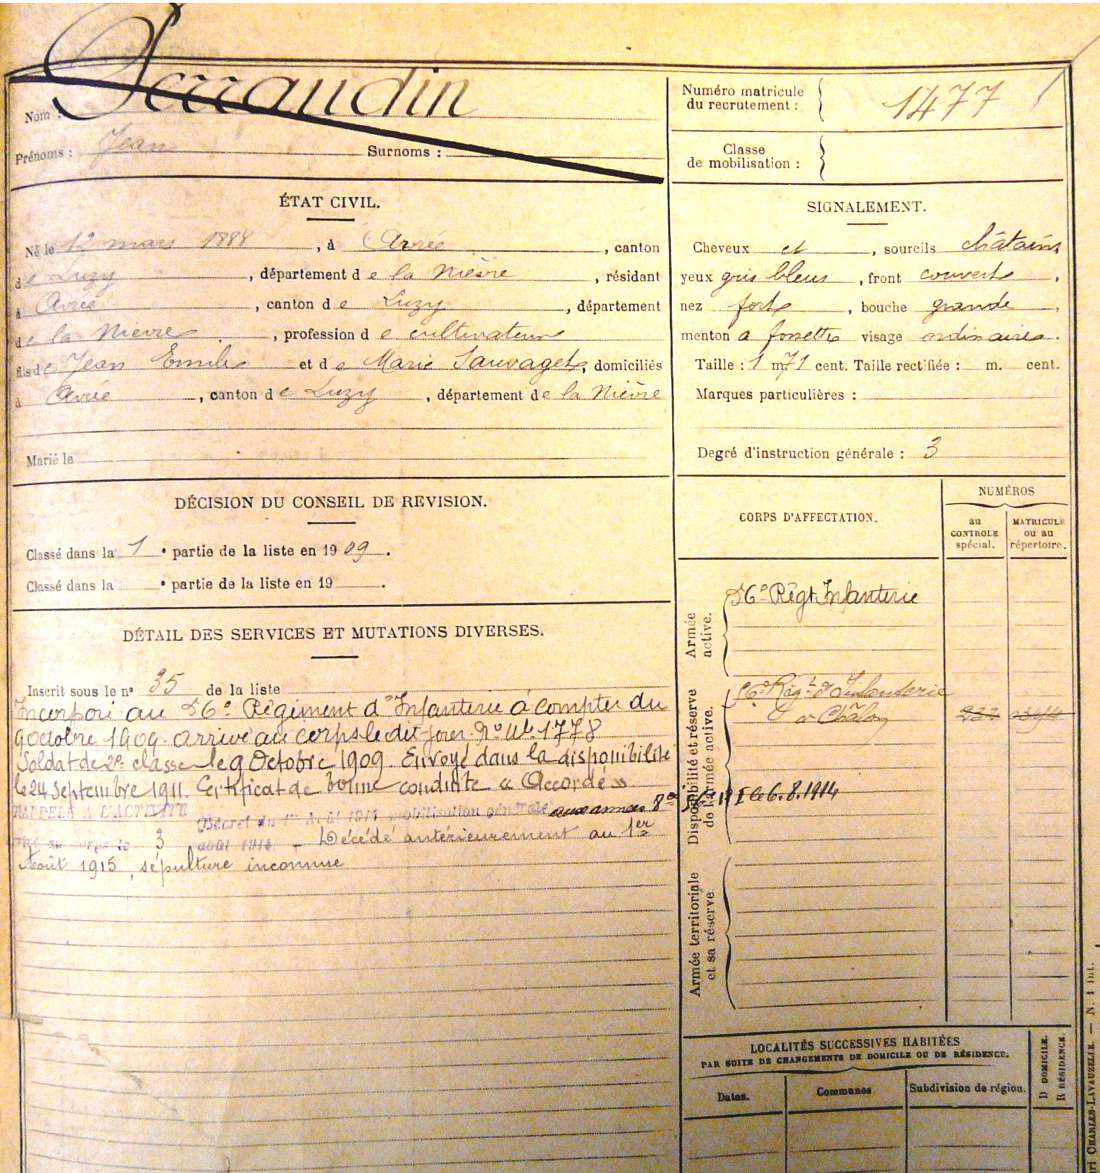 Nom : Perraudin
Prénoms : Jean Surnoms :
Numéro matricule
du recrutement : 1477
Classe
de mobilisation :
ÉTAT CIVIL.
Né le 12 mars 1888, à Avrée, canton
de Luzy, département de la Nièvre, résidant
à Avrée, canton de Luzy, département
de la Nièvre, profession de cultivateur
fils de Jean Emile et de Marie Sauvaget, domiciliés
à Avrée, canton de Luzy, département de la Nièvre
Marié le
SIGNALEMENT.
Cheveux et, sourcils châtains
yeux gris bleus, front couvert,
nez fort, bouche grande,
menton à fossette visage ordinaire.
Taille : 1 m 71 cent. Taille rectifiée : m. cent.
Marques particulières :
Degré d'instruction générale : 3
DÉCISION DU CONSEIL DE REVISION.
Classé dans la 1e partie de la liste en 1909.
Classé dans la e partie de la liste en 19 .
DÉTAIL DES SERVICES ET MUTATIONS DIVERSES.
Inscrit sous le no 35 de la liste
Incorporé au 56e Régiment d'Infanterie à compter du
9 octobre 1909. arrivé au corps le dit jour. No Mle 1778
Soldat de 2e classe le 9 Octobre 1909. Envoyé dans la disponibilité
le 24 septembre 1911. Certificat de bonne conduite « Accordé »
RAPPELÉ A L'ACTIVITÉ Décret du 1er Août 1914 mobilisation générale aux armées
Arrivé au corps le 3 août 1914 _ Décédé antérieurement au 1er
Août 1915, sépulture inconnue
CORPS D'AFFECTATION.
NUMÉROS
au
CONTROLE
spécial.
MATRICULE
ou au
répertoire.
Armée
active.
56e Régt Infanterie
Disponibilité et réserve
de l'armée active.
56e Régt d'Infanterie
à Châlon
232
le 6.8.1914
Armée territoriale
et sa réserve.
LOCALITÉS SUCCESSIVES HABITÉES
PAR SUITE DE CHANGEMENTS DE DOMICILE OU DE RÉSIDENCE.
Dates.
Communes
Subdivision de région.
D DOMICILE.
R RÉSIDENCE.
CHARLES-LAVAUZELLE. — N.